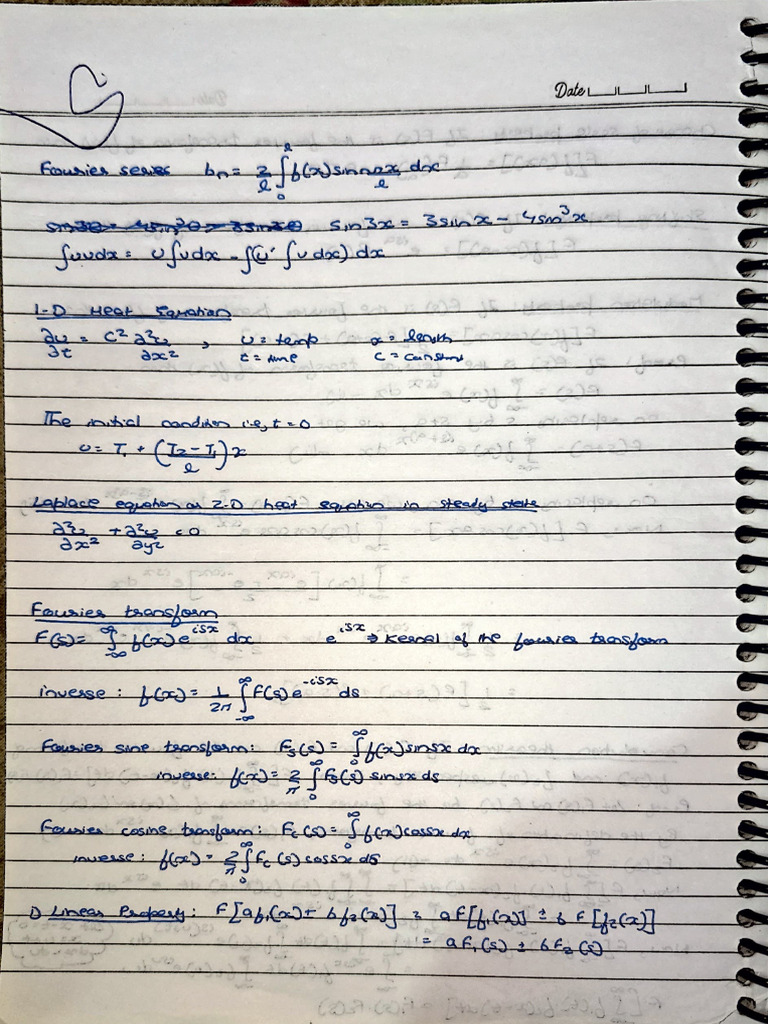 Date
Fourier series bn = 2/l ∫₀ˡ f(x) sin nπx/l dx
sin3x = 3sinx - 4sin³x
∫uvdx = u∫vdx - ∫(u' ∫vdx) dx
1-D Heat Equation
∂u/∂t = C² ∂²u/∂x² , u = temp x = length
t = time c = constant
The initial condition i.e, t = 0
u = T₁ + (T₂ - T₁/l)x
Laplace equation or 2-D heat equation in steady state
∂²u/∂x² + ∂²u/∂y² = 0
Fourier transform
F(s) = ∫_-∞^∞ f(x) e^isx dx e^isx ⇒ Kernel of the fourier transform
inverse : f(x) = 1/2π ∫_-∞^∞ F(s) e^-isx ds
Fourier sine transform: Fs(s) = ∫₀^∞ f(x) sinsx dx
inverse: f(x) = 2/π ∫₀^∞ Fs(s) sinsx ds
Fourier cosine transform: Fc(s) = ∫₀^∞ f(x) cossx dx
inverse : f(x) = 2/π ∫₀^∞ Fc(s) cossx ds
1) Linear Property: F[af₁(x) ± bf₂(x)] = aF[f₁(x)] ± b F[f₂(x)]
= aF₁(s) ± bF₂(s)